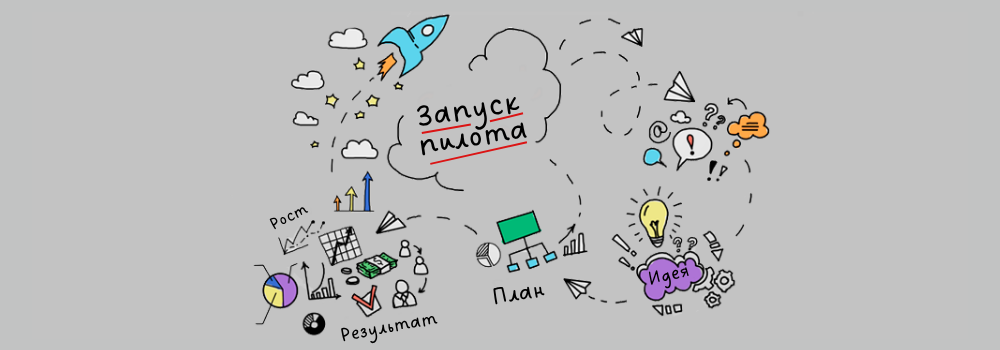 Запуск
пилота
@
Рост
Идея
План
Результат